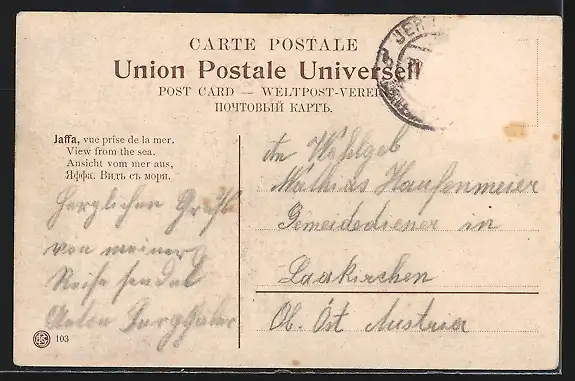 CARTE POSTALE
Union Postale Universell
POST CARD — WELTPOST-VEREIN
ПОЧТОВЫЙ КАРТЪ.
JER
Jaffa, vue prise de la mer.
View from the sea.
Ansicht vom mer aus,
Яффа. Видъ съ моря.
Herzlichen Gruß
von meiner
Reise sendet
Anton
An Wohlgeb
Mathias Haufenmeier
Gemeidediener in
Laakirchen
Ob. Öst Austria
103